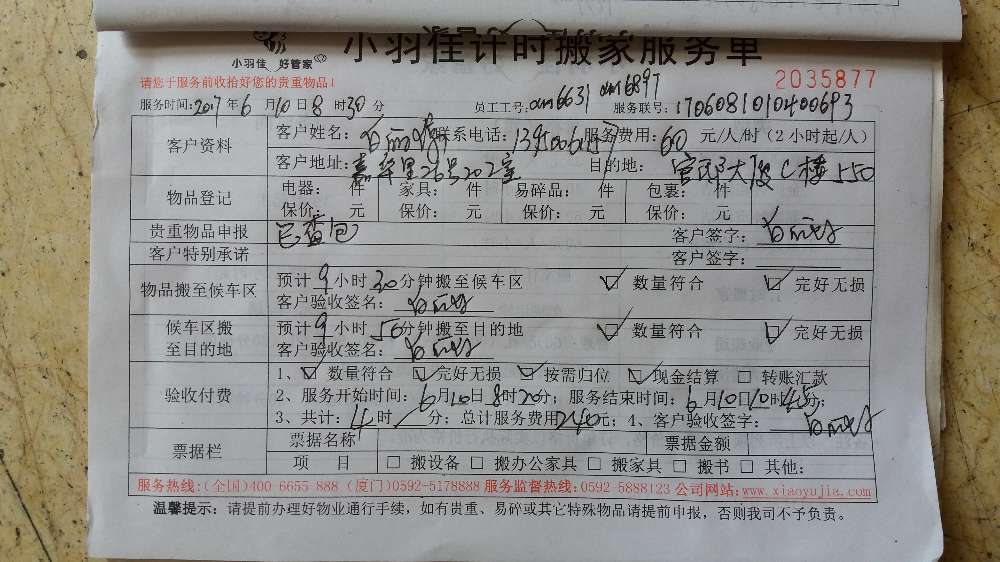 小羽佳计时搬家服务单
小羽佳 好管家
请您于服务前收拾好您的贵重物品! 2035877
服务时间:2017年6月10日8时30分 员工工号:xm6631 xm6897 服务联号:1706081010400693
客户资料 客户姓名: 联系电话: 服务费用:60元/人/时(2小时起/人)
客户地址:嘉华里26号202室 目的地:官邸大厦C楼550
物品登记 电器: 件 家具: 件 易碎品: 件 包裹: 件
保价: 元 保价: 元 保价: 元 保价: 元
贵重物品申报 已查包 客户签字:
客户特别承诺 客户签字:
物品搬至候车区 预计9小时30分钟搬至候车区 ☑ 数量符合 ☑ 完好无损
客户验收签名:
候车区搬至目的地 预计9小时50分钟搬至目的地 ☑ 数量符合 ☑ 完好无损
客户验收签名:
验收付费 1、☑ 数量符合 ☑ 完好无损 ☑ 按需归位 ☑ 现金结算 □ 转账汇款
2、服务开始时间:6月10日8时20分;服务结束时间:6月10日10时45分;
3、共计:4时/分;总计服务费用240元;4、客户验收签字:
票据栏 票据名称 票据金额
项 目 □ 搬设备 □ 搬办公家具 □ 搬家具 □ 搬书 □ 其他:
服务热线:(全国)400-6655-888 (厦门)0592-5178888 服务监督热线:0592-5888123 公司网站:www.xiaoyujia.com
温馨提示:请提前办理好物业通行手续,如有贵重、易碎或其它特殊物品请提前申报,否则我司不予负责。